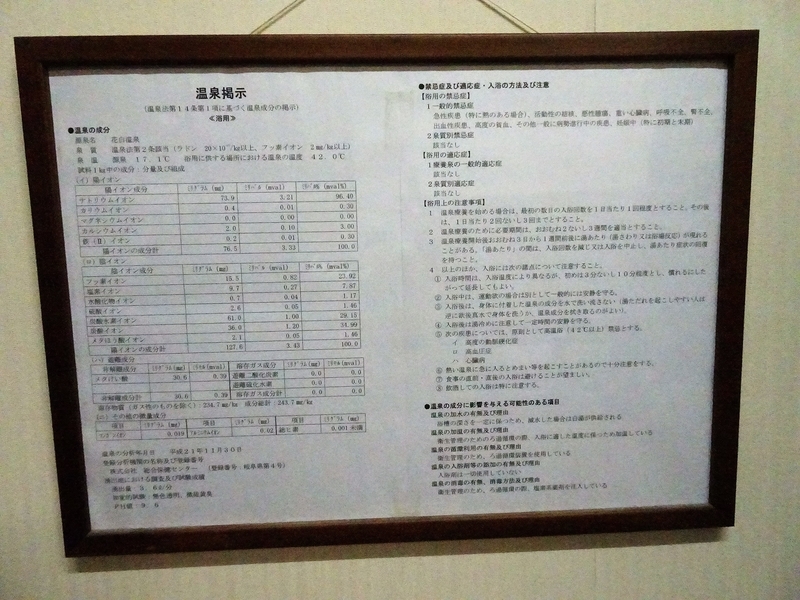 温泉掲示
(温泉法第14条第1項に基づく温泉成分の掲示)
≪浴用≫
●温泉の成分
源泉名 花白温泉
泉質 温泉法第2条該当(ラドン 20×10 /kg以上、フッ素イオン 2mg/kg以上)
泉温 源泉 17.1℃ 浴用に供する場所における温泉の温度 42.0℃
試料1kg中の成分・分量及び組成
(イ)陽イオン
陽イオン成分 ミリグラム(mg) ミリバル(mval) ミリバル%(mval%)
ナトリウムイオン 73.9 3.21 96.40
カリウムイオン 0.4 0.01 0.30
マグネシウムイオン 0.0 0.00 0.00
カルシウムイオン 2.0 0.10 3.00
鉄(Ⅱ)イオン 0.2 0.01 0.30
陽イオンの成分計 76.5 3.33 100.0
(ロ)陰イオン
陰イオン成分 ミリグラム(mg) ミリバル(mval) ミリバル%(mval%)
フッ素イオン 15.5 0.82 23.92
塩素イオン 9.7 0.27 7.87
水酸化物イオン 0.7 0.04 1.17
硫酸イオン 2.6 0.05 1.46
炭酸水素イオン 61.0 1.00 29.15
炭酸イオン 36.0 1.20 34.99
メタほう酸イオン 2.1 0.05 1.46
陰イオンの成分計 127.6 3.43 100.0
(ハ)遊離成分
非解離成分 ミリグラム(mg) ミリモル(mmol) 溶存ガス成分 ミリグラム(mg) ミリモル(mmol)
メタけい酸 30.6 0.39 遊離二酸化炭素 0.0 0.0
遊離硫化水素 0.0 0.0
非解離成分計 30.6 0.39 溶存ガス成分計 0.0 0.0
溶存物質(ガス性のものを除く):234.7mg/kg 成分総計:243.7mg/kg
(ニ)その他の微量成分
項目 ミリグラム(mg) 項目 ミリグラム(mg) 項目 ミリグラム(mg)
0.019 アルミニウムイオン 0.02 総ヒ素 0.001未満
温泉の分析年月日 平成21年11月30日
登録分析機関の名称及び登録番号
株式会社 総合保健センター (登録番号 岐阜県第4号)
湧出地における調査及び試験成績
湧出量:3.6ℓ/分
知覚的試験:無色透明、微硫黄臭
PH値:9.6
●禁忌症及び適応症・入浴の方法及び注意
【浴用の禁忌症】
1一般的禁忌症
急性疾患(特に熱のある場合)、活動性の結核、悪性腫瘍、重い心臓病、呼吸不全、腎不全、
出血性疾患、高度の貧血、その他一般に病勢進行中の疾患、妊娠中(特に初期と末期)
2泉質別禁忌症
該当なし
【浴用の適応症】
1療養泉の一般的適応症
該当なし
2泉質別適応症
該当なし
【浴用上の注意事項】
1 温泉療養を始める場合は、最初の数日の入浴回数を1日当たり1回程度とすること。その後
は、1日当たり2回ないし3回までとすること。
2 温泉療養のための必要期間は、おおむね2ないし3週間を適当とすること。
3 温泉療養開始後おおむね3日から1週間前後に湯あたり(湯さわり又は浴場反応)が現れる
ことがある。「湯あたり」の間は、入浴回数を減じ又は入浴を中止し、湯あたり症状の回復
を待つこと。
4 以上のほか、入浴には次の諸点について注意すること。
① 入浴時間は、入浴温度により異なるが、初めは3分ないし10分程度とし、慣れるにした
がって延長してもよい。
② 入浴中は、運動浴の場合は別として一般的には安静を守る。
③ 入浴後は、身体に付着した温泉の成分を水で洗い流さない(湯ただれを起こしやすい人は
逆に浴後真水で身体を洗うか、温泉成分を拭き取るのがよい)。
④ 入浴後は湯冷めに注意して一定時間の安静を守る。
⑤ 次の疾患については、原則として高温浴(42℃以上)禁忌とする。
イ 高度の動脈硬化症
ロ 高血圧症
ハ 心臓病
⑥ 熱い温泉に急に入るとめまい等を起こすことがあるので十分注意をする。
⑦ 食事の直前・直後の入浴は避けることが望ましい。
⑧ 飲酒しての入浴は特に注意する。
●温泉の成分に影響を与える可能性のある項目
温泉の加水の有無及び理由
浴槽の深さを一定に保つため、減水した場合は自動が供給される
温泉の加温の有無及び理由
衛生管理のためのろ過循環の際、入浴に適した温度に保つため加温している
温泉の循環利用の有無及び理由
衛生管理のため、ろ過循環装置を使用している
温泉の入浴剤等の添加の有無及び理由
入浴剤は一切使用していない
温泉の消毒の有無、消毒方法及び理由
衛生管理のため、ろ過循環の際、塩素系薬剤を注入している